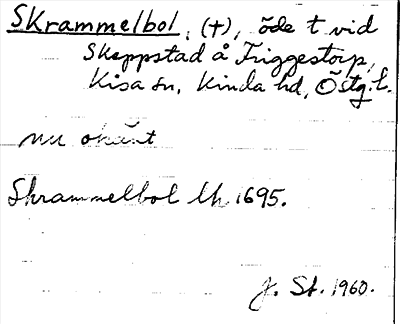 Skrammelbol, (†), öde t vid
Skeppstad å Triggestorp,
Kisa sn, Kinda hd, Östg. l.
nu okänt
Skrammelbol lh 1695.
J. St. 1960.